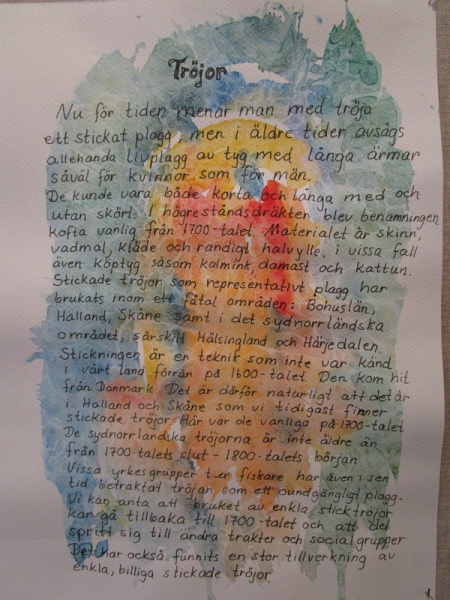 Tröjor
Nu för tiden menar man med tröja
ett stickat plagg, men i äldre tider avsågs
allehanda livplagg av tyg med långa ärmar
såväl för kvinnor som för män.
De kunde vara både korta och långa med och
utan skört. I högreståndsdräkten blev benämningen
kofta vanlig från 1700-talet. Materialet är skinn,
vadmal, kläde och randigt halvylle, i vissa fall
även köptyg såsom kalmink, damast och kattun.
Stickade tröjor som representativt plagg har
brukats inom ett fåtal områden: Bohuslän,
Halland, Skåne samt i det sydnorrländska
området, särskilt Hälsingland och Härjedalen.
Stickningen är en teknik som inte var känd
i vårt land förrän på 1600-talet. Den kom hit
från Danmark. Det är därför naturligt att det är
i Halland och Skåne som vi tidigast finner
stickade tröjor. Här var de vanliga på 1700-talet
De sydnorrländska tröjorna är inte äldre än
från 1700-talets slut - 1800-talets början
Vissa yrkesgrupper t.ex fiskare har även i sen
tid betraktat tröjan som ett oundgängligt plagg.
Vi kan anta att bruket av enkla sticktröjor
kan gå tillbaka till 1700-talet och att det
spritt sig till andra trakter och socialgrupper
Det har också funnits en stor tillverkning av
enkla, billiga stickade tröjor.